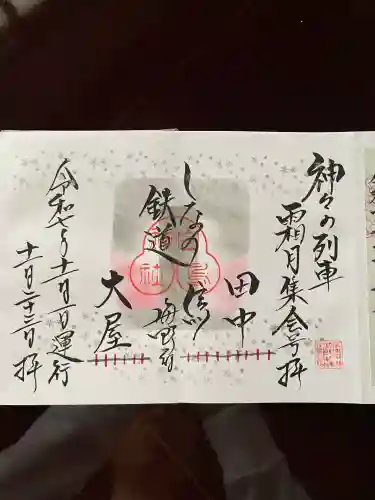 神々の列車
霜月集会号拝
田中
しなの
鉄道
海野宿
大屋
令和七年十一月一日運行
十一月二十三日拝